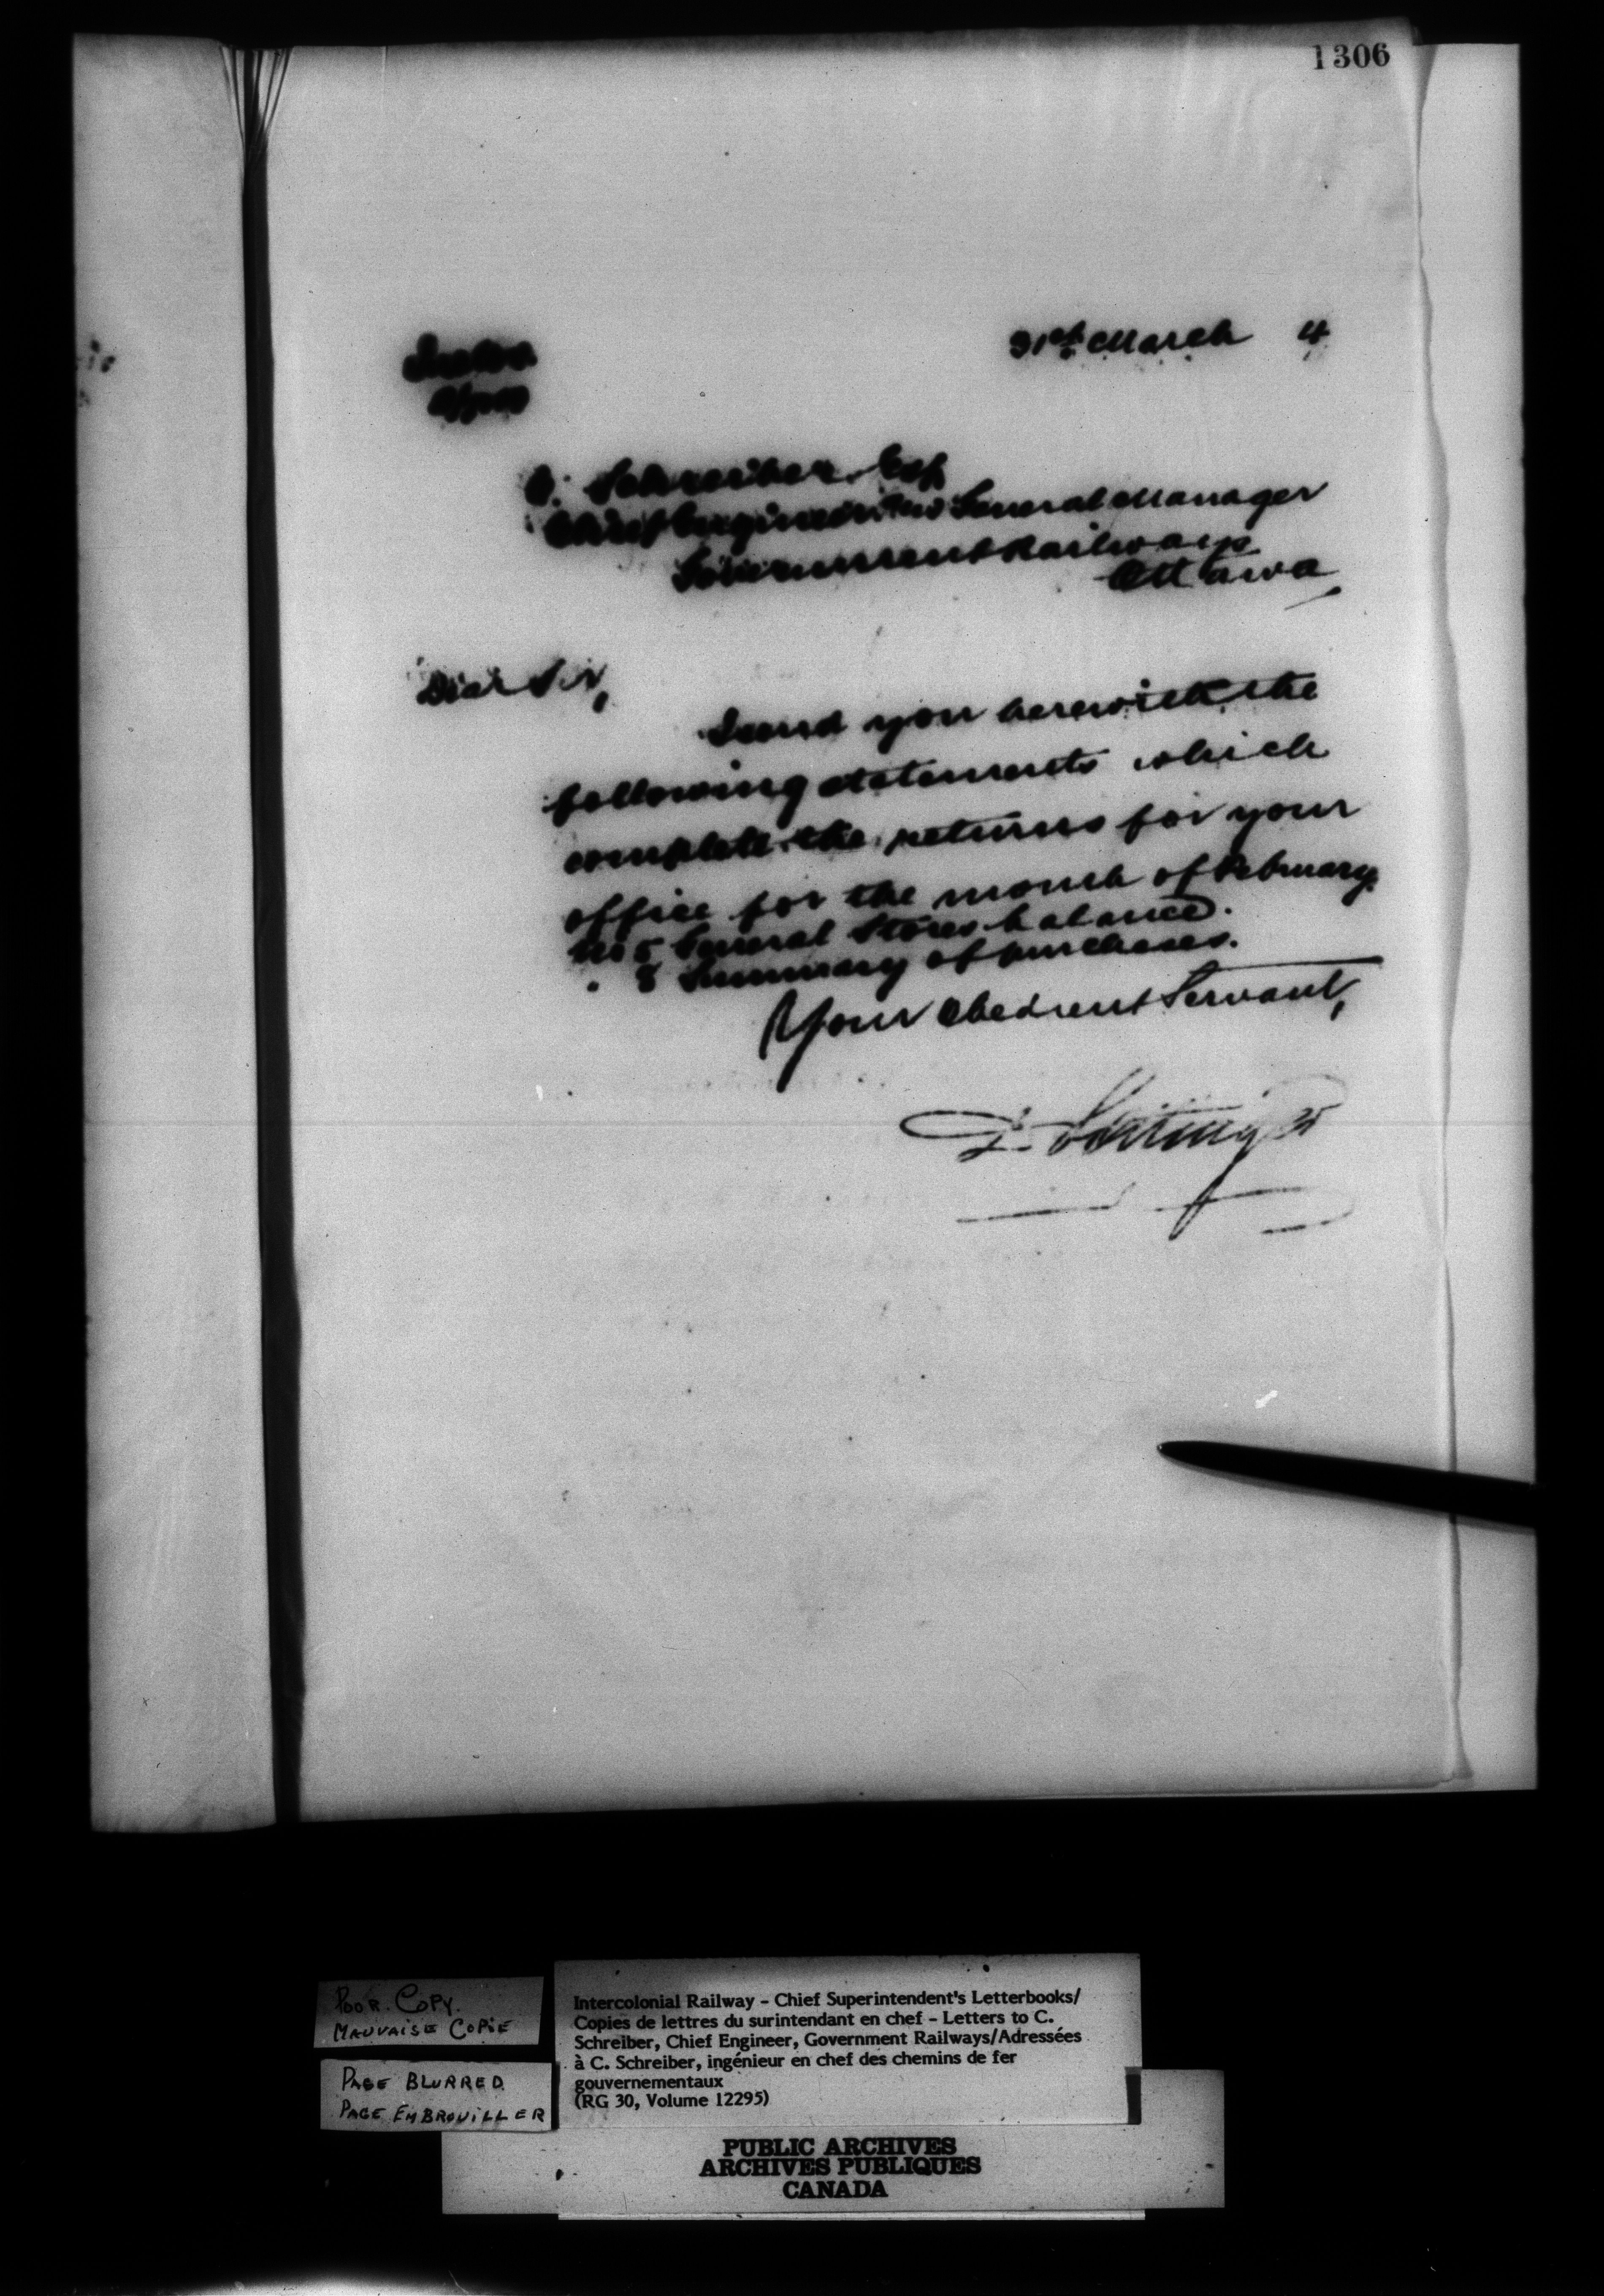 1306
31st March 4
C. Schreiber Esq
Chief Engineer and General Manager
Government Railways
Ottawa
Dear Sir,
I send you herewith the
following statements which
complete the returns for your
office for the month of February.
No 5 General Stores balance.
" 8 Summary of purchases.
Your Obedient Servant,
D. Pottinger
POOR COPY.
MAUVAISE COPIE
PAGE BLURRED
PAGE EMBROUILLER
Intercolonial Railway – Chief Superintendent's Letterbooks/
Copies de lettres du surintendant en chef – Letters to C.
Schreiber, Chief Engineer, Government Railways/Adressées
à C. Schreiber, ingénieur en chef des chemins de fer
gouvernementaux
(RG 30, Volume 12295)
PUBLIC ARCHIVES
ARCHIVES PUBLIQUES
CANADA